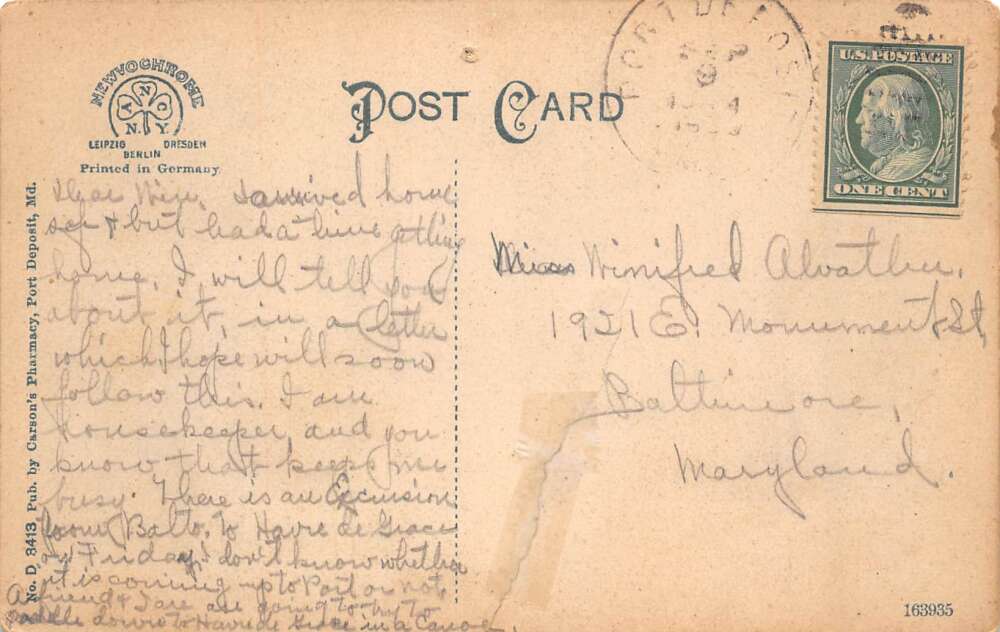 NEWVOCHROME
ANC
N.Y.
LEIPZIG DRESDEN
BERLIN
Printed in Germany
POST CARD
PORT DEPOSIT
SEP
9
U.S. POSTAGE
ONE CENT
No. D 3413 Pub. by Carson's Pharmacy, Port Deposit, Md.
Dear Win, I arrived home
safe but had a time getting
home, I will tell you
about it, in a letter
which I hope will soon
follow this. I am
housekeeper, and you
know that keeps me
busy. There is an Excursion
from Balto. to Havre de Grace
on Friday, I don't know whether
it is coming up to Port or not
A friend & I are going to try to
paddle down to Havre de Grace in a Canoe.
Miss Winifred
1921 E. Monument St,
Baltimore,
Maryland.
163935